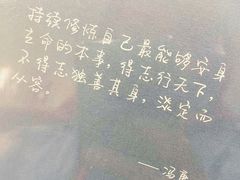 持续修炼自己最能够安身
立命的本事，得志行天下，
不得志独善其身，淡定而
从容。
——冯